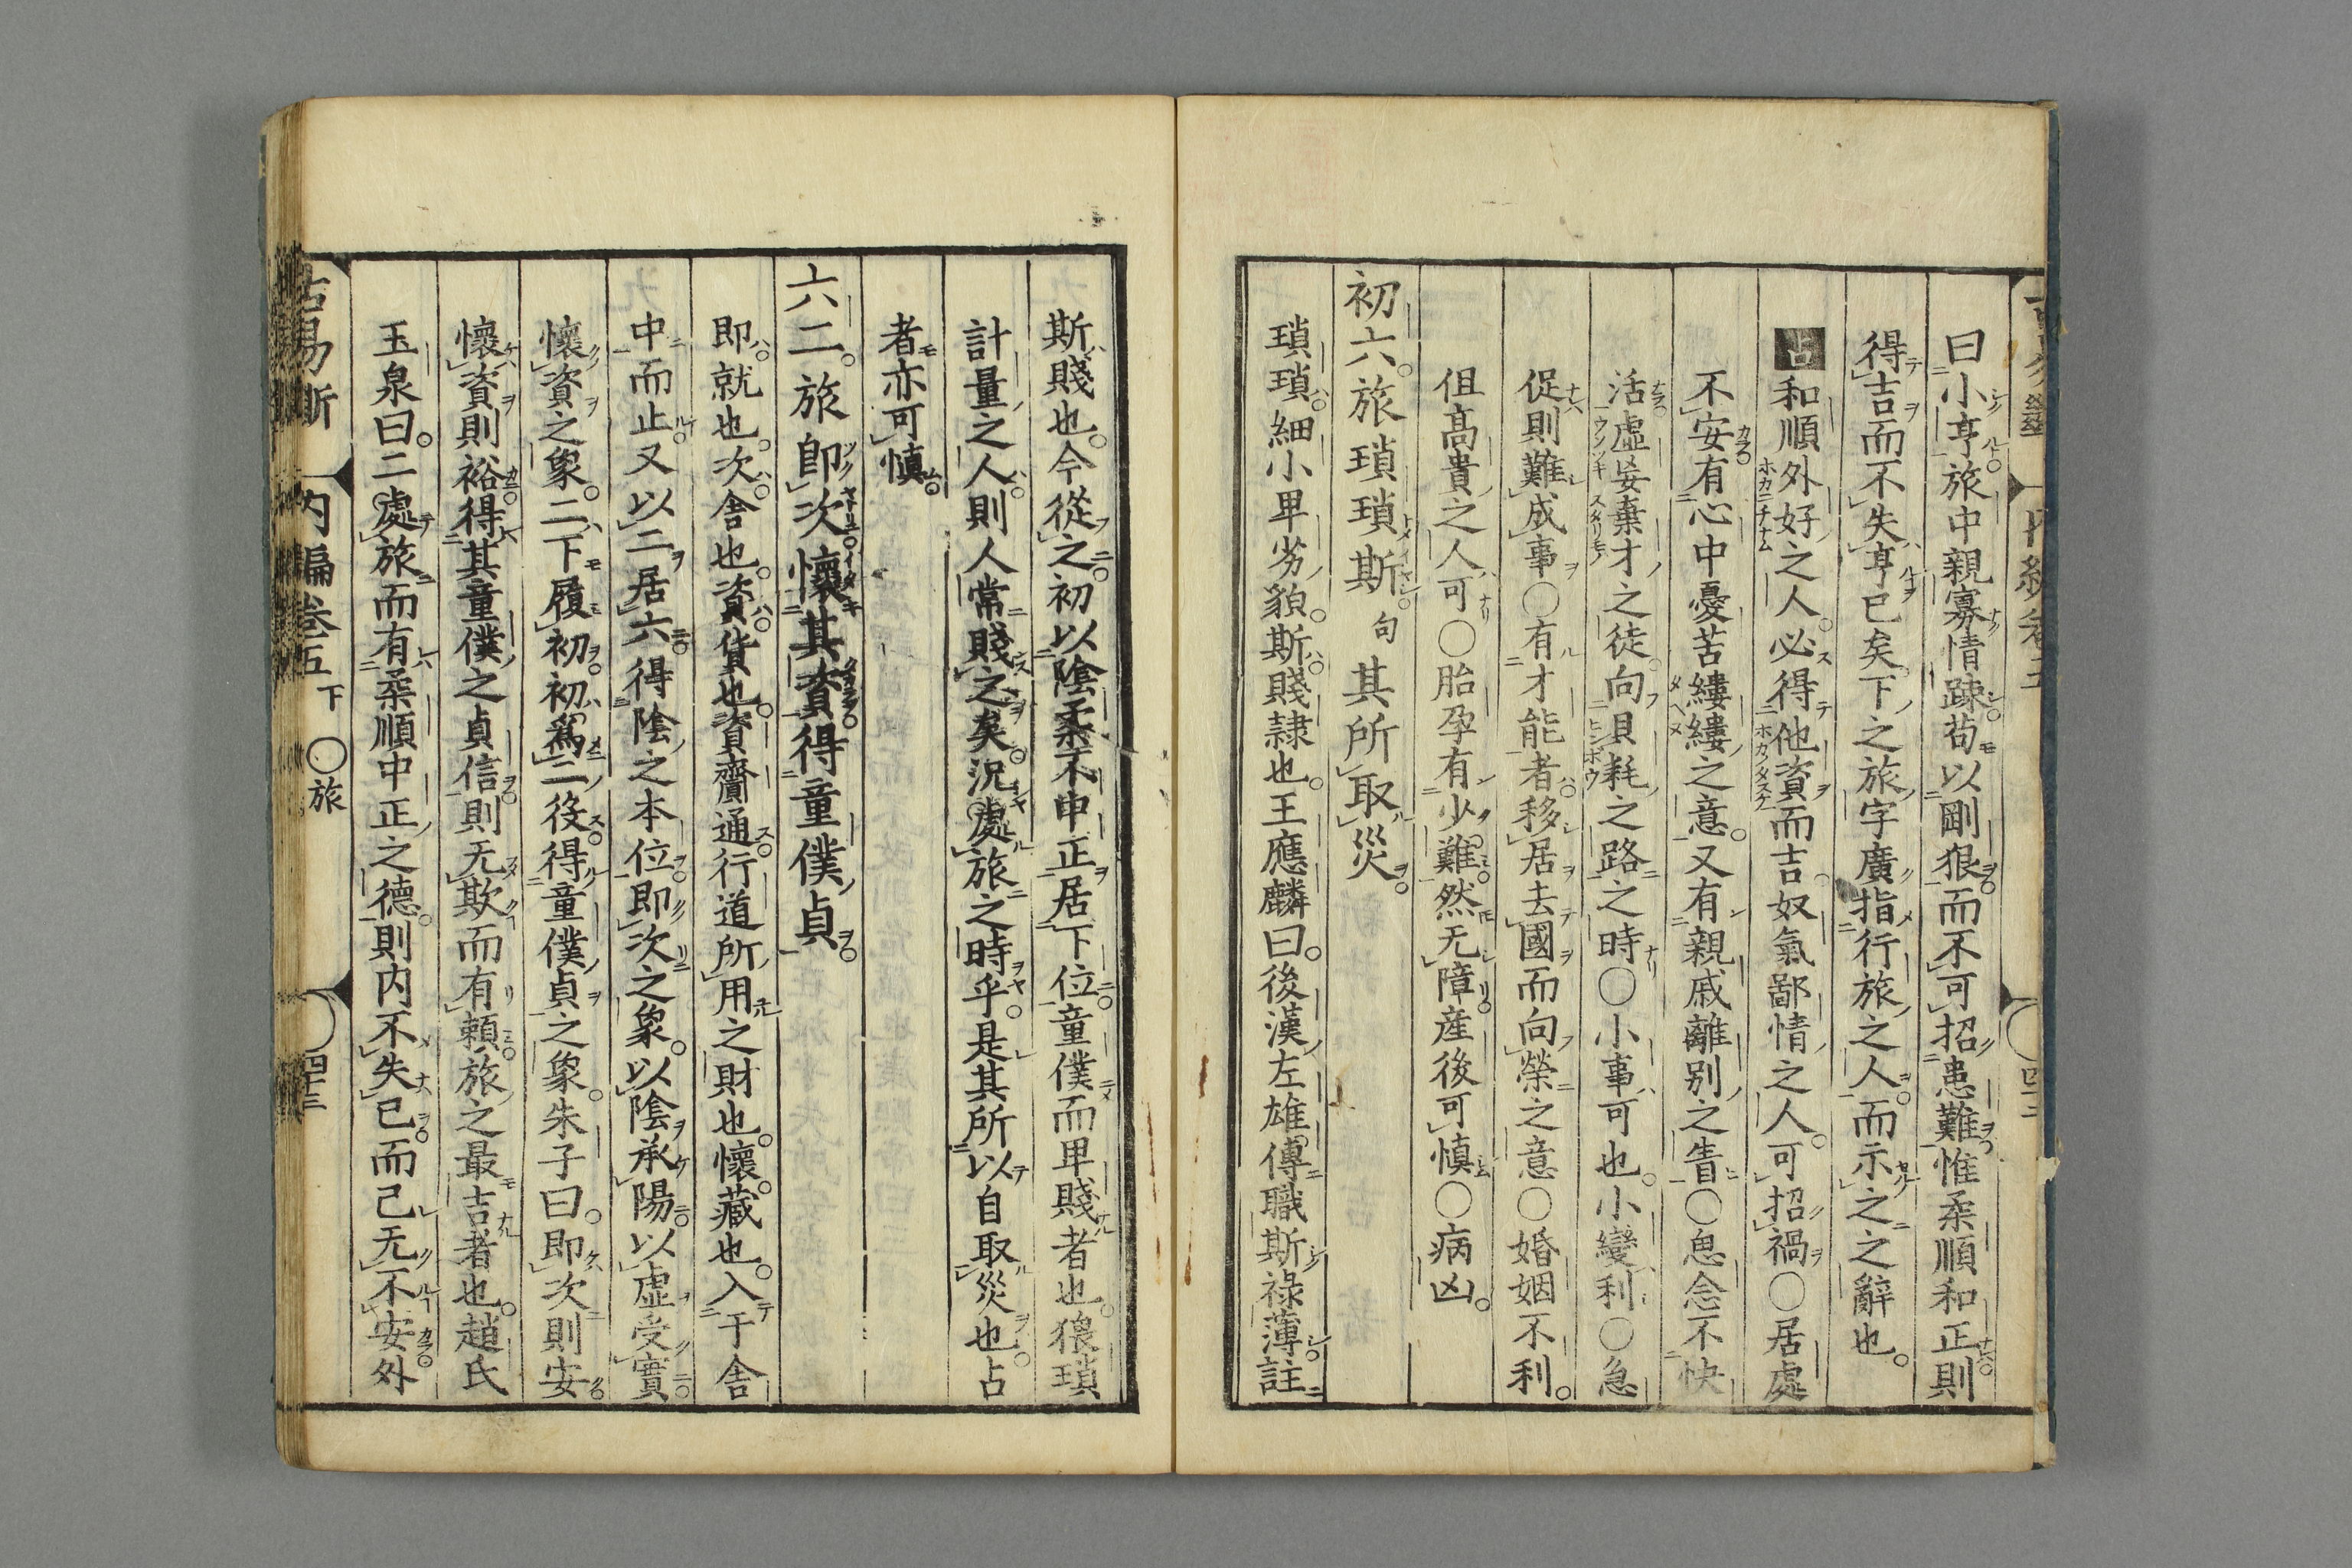 曰小亨旅中親寡情踈苟以剛狠而不可招患難惟柔順和正則
得吉而不失亨已矣下之旅字廣指行旅之人而示之之辭也
占和順外好之人必得他資而吉奴氣鄙情之人可招禍〇居處
不安有心中憂苦縷縷之意又有親戚離別之眚〇思念不快
活虛妄棄才之徒向損耗之路之時〇小事可也小變利〇急
促則難成事〇有才能者移居去國而向榮之意〇婚姻不利
但高貴之人可〇胎孕有少難然无障産後可慎〇病凶
初六旅瑣瑣斯句其所取災
瑣瑣細小卑劣貌斯賤隷也王應麟曰後漢左雄傳職斯祿薄註
斯賤也今從之初以陰柔不中正居下位童僕而卑賤者也猥瑣
計量之人則人常賤之矣況處旅之時乎是其所以自取災也占
者亦可慎
六二旅即次懷其資得童僕貞
即就也次舍也資貨也資齎通行道所用之財也懷藏也入于舍
中而止又以二居六得陰之本位即次之象以陰承陽以虛受實
懷資之象二下履初初爲二役得童僕貞之象朱子曰即次則安
懷資則裕得其童僕之貞信則无欺而有頼旅之最吉者也趙氏
玉泉曰二處旅而有柔順中正之德則内不失已而己无不安外
古易斷
内編卷五下
〇旅
四十三